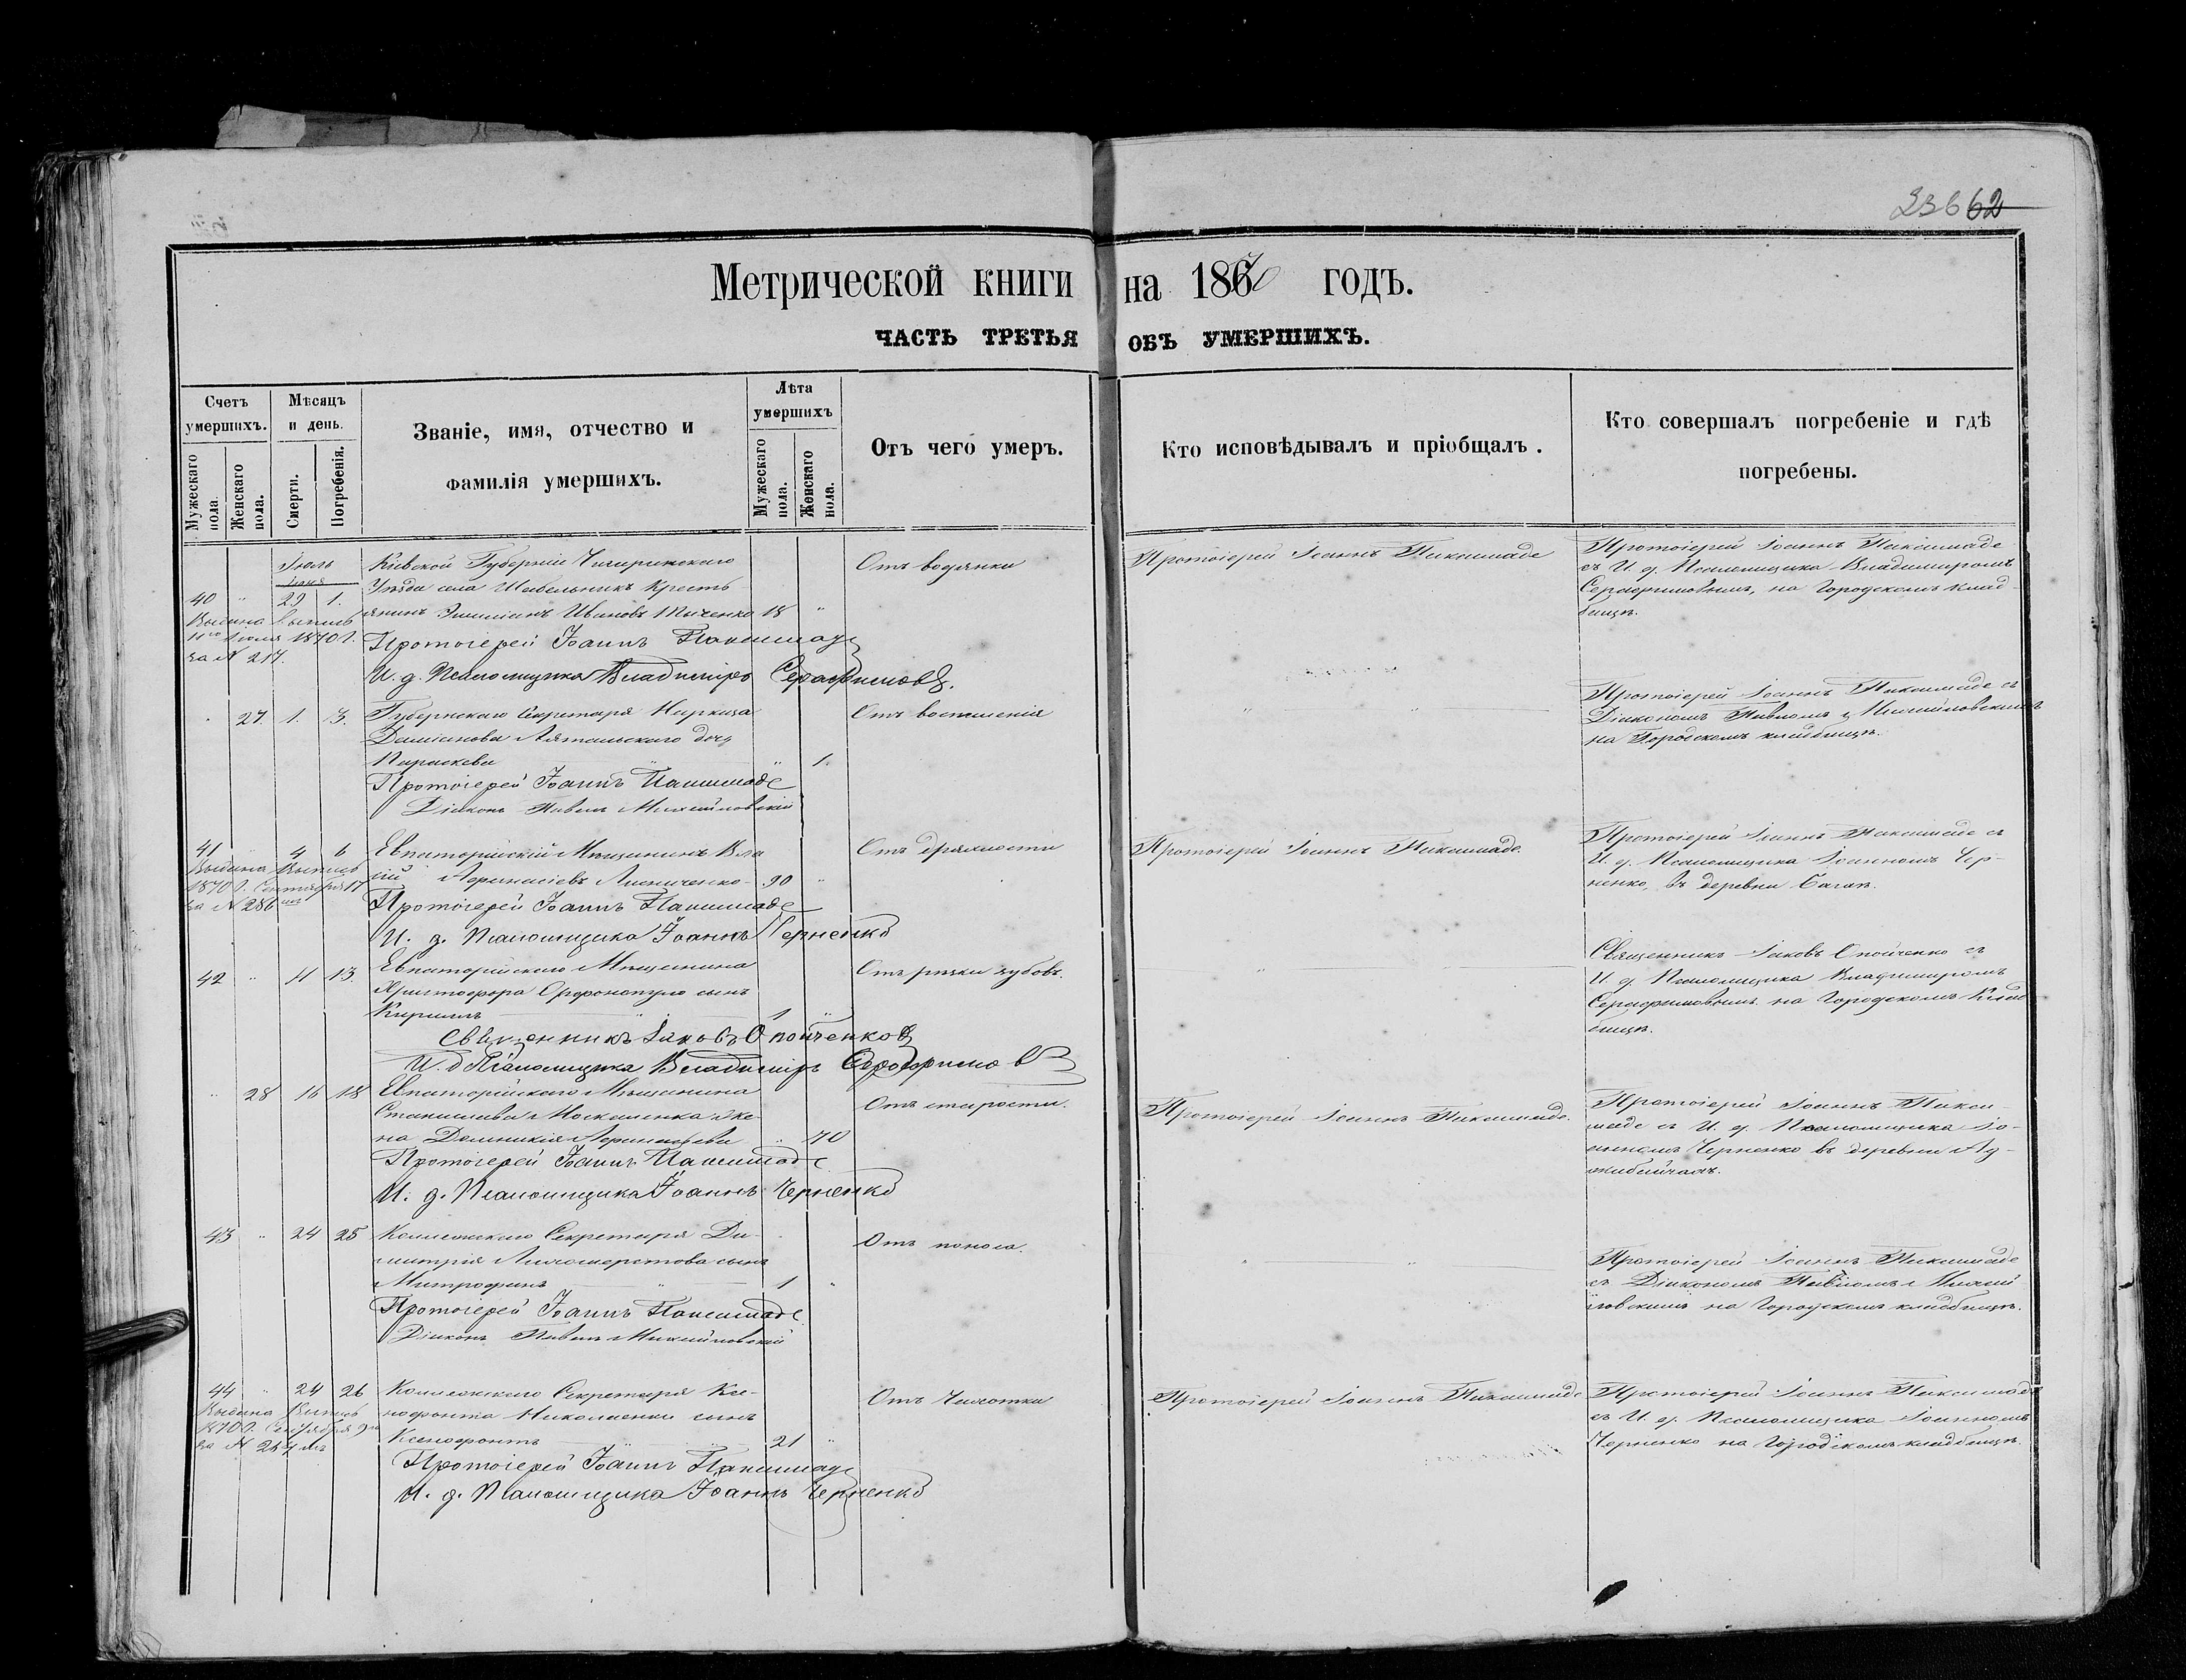 23662
Метрической книги на 1870 годъ.
ЧАСТЬ ТРЕТЬЯ ОБЪ УМЕРШИХЪ.
Счетъ умершихъ.
Мѣсяцъ и день.
Званіе, имя, отчество и фамилія умершихъ.
Лѣта умершихъ
Отъ чего умеръ.
Кто исповѣдывалъ и пріобщалъ.
Кто совершалъ погребеніе и гдѣ погребены.
Мужескаго пола.
Женскаго пола.
Смерти.
Погребенія.
Мужескаго пола.
Женскаго пола.
Іюль
Іюня
40 " 29 1.
Кіевской Губерніи Чигиринскаго
Уѣзда села Шабельникъ Кресть
янинъ Эмиліанъ Ивановъ 18 "
Отъ водянки
Протоіерей Іоаннъ
Протоіерей Іоаннъ
съ И. д. Псаломщика Владиміромъ
Серафимовымъ, на Городскомъ клад-
бищѣ.
Выдана выпись
11го Іюля 1870 г.
за № 217.
Протоіерей Іоаннъ
И. д. Псаломщика Владиміръ Серафимовъ.
" 27. 1. 3.
Губернскаго Секретаря
Даміанова дочь
Параскева " 1.
Отъ воспаленія
Протоіерей Іоаннъ съ
Діакономъ Павломъ Михайловскимъ
на Городскомъ кладбищѣ.
Протоіерей Іоаннъ
Діаконъ Павелъ Михайловскій
41 " 4 6
Евпаторійскій Мѣщанинъ Вла
сій Аѳанасіевъ Лисниченко 90 "
Отъ дряхлости
Протоіерей Іоаннъ
Протоіерей Іоаннъ съ
И. д. Псаломщика Іоанномъ Чер-
ненко, въ деревни
Выдана выпись
1870 г. Сентября 17
за № 286
Протоіерей Іоаннъ
И. д. Псаломщика Іоаннъ Черненко
42 " 11 13.
Евпаторійскаго Мѣщанина
Христофора сынъ
Кириллъ 1 "
Отъ рѣзки зубовъ.
Священникъ Іаковъ Опойченко съ
И. д. Псаломщика Владиміромъ
Серафимовымъ на Городскомъ Клад
бищѣ.
Священникъ Іаковъ Опойченковъ
И. д. Псаломщика Владиміръ Серафимовъ
" 28 16 18
Евпаторійскаго Мѣщанина
Станислава Москаленка же-
на Домникія Аѳанасьева " 70
Отъ старости.
Протоіерей Іоаннъ
Протоіерей Іоаннъ
съ И. д. Псаломщика Іо-
анномъ Черненко въ деревни
Протоіерей Іоаннъ
И. д. Псаломщика Іоаннъ Черненко
43 " 24 25
Коллежскаго Секретаря Ди-
митрія сынъ
Митрофанъ 1 "
Отъ поноса.
Протоіерей Іоаннъ
съ Діакономъ Павломъ Михай
ловскимъ на Городскомъ кладбищѣ.
Протоіерей Іоаннъ
Діаконъ Павелъ Михайловскій
44 " 24 26
Коллежскаго Секретаря Ксе-
нофонта Николаенки сынъ
Ксенофонтъ 21 "
Отъ Чахотки
Протоіерей Іоаннъ
Протоіерей Іоаннъ
съ И. д. Псаломщика Іоанномъ
Черненко на Городскомъ кладбищѣ.
Выдана выпись
1870 г. Сентября 9
за №
Протоіерей Іоаннъ
И. д. Псаломщика Іоаннъ Черненко